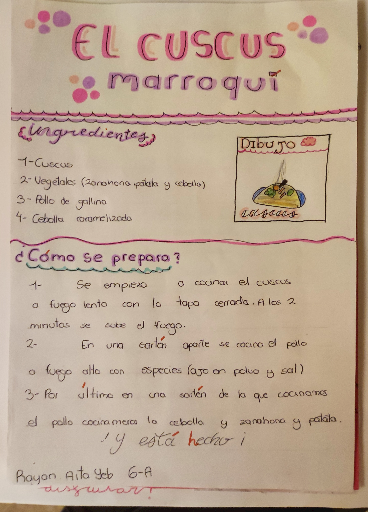 EL CUSCUS
marroquí
Ingredientes
DIBUJO
1-Cuscus
2- Vegetales (zanahoria patata y cebolla)
3- Pollo de gallina
4- Cebolla caramelizada
cuscus
¿Cómo se prepara?
1- Se empieza a cocinar el cuscus
a fuego lento con la tapa cerrada. A los 2
minutos se sube el fuego.
2- En una sartén aparte se cocina el pollo
a fuego alto con especies (ajo en polvo y sal)
3- Por última en una sartén de la que cocinamos
el pollo la cebolla y zanahoria y patata.
¡Y está hecho!
Rayan 6-A
disfrutar!